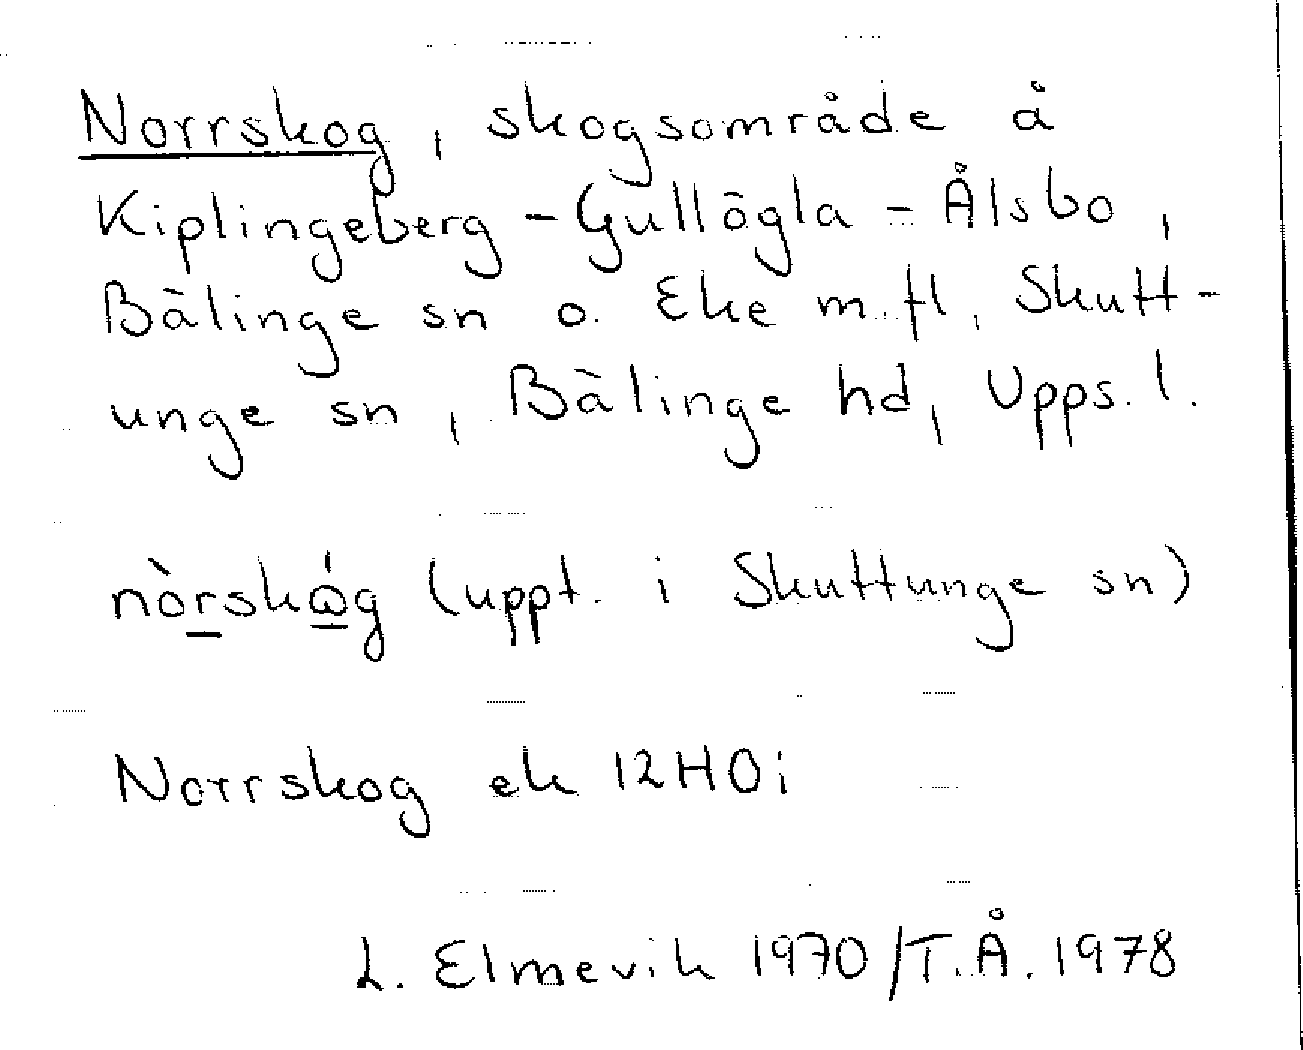 Norrskog, skogsområde å
Kiplingeberg - Gullögla - Ålsbo,
Bälinge sn o. Eke m.fl, Skutt-
unge sn, Bälinge hd, Upps. l.
nòrskǻg (uppt. i Skuttunge sn)
Norrskog ek 12H0i
L. Elmevik 1970/T.Å. 1978